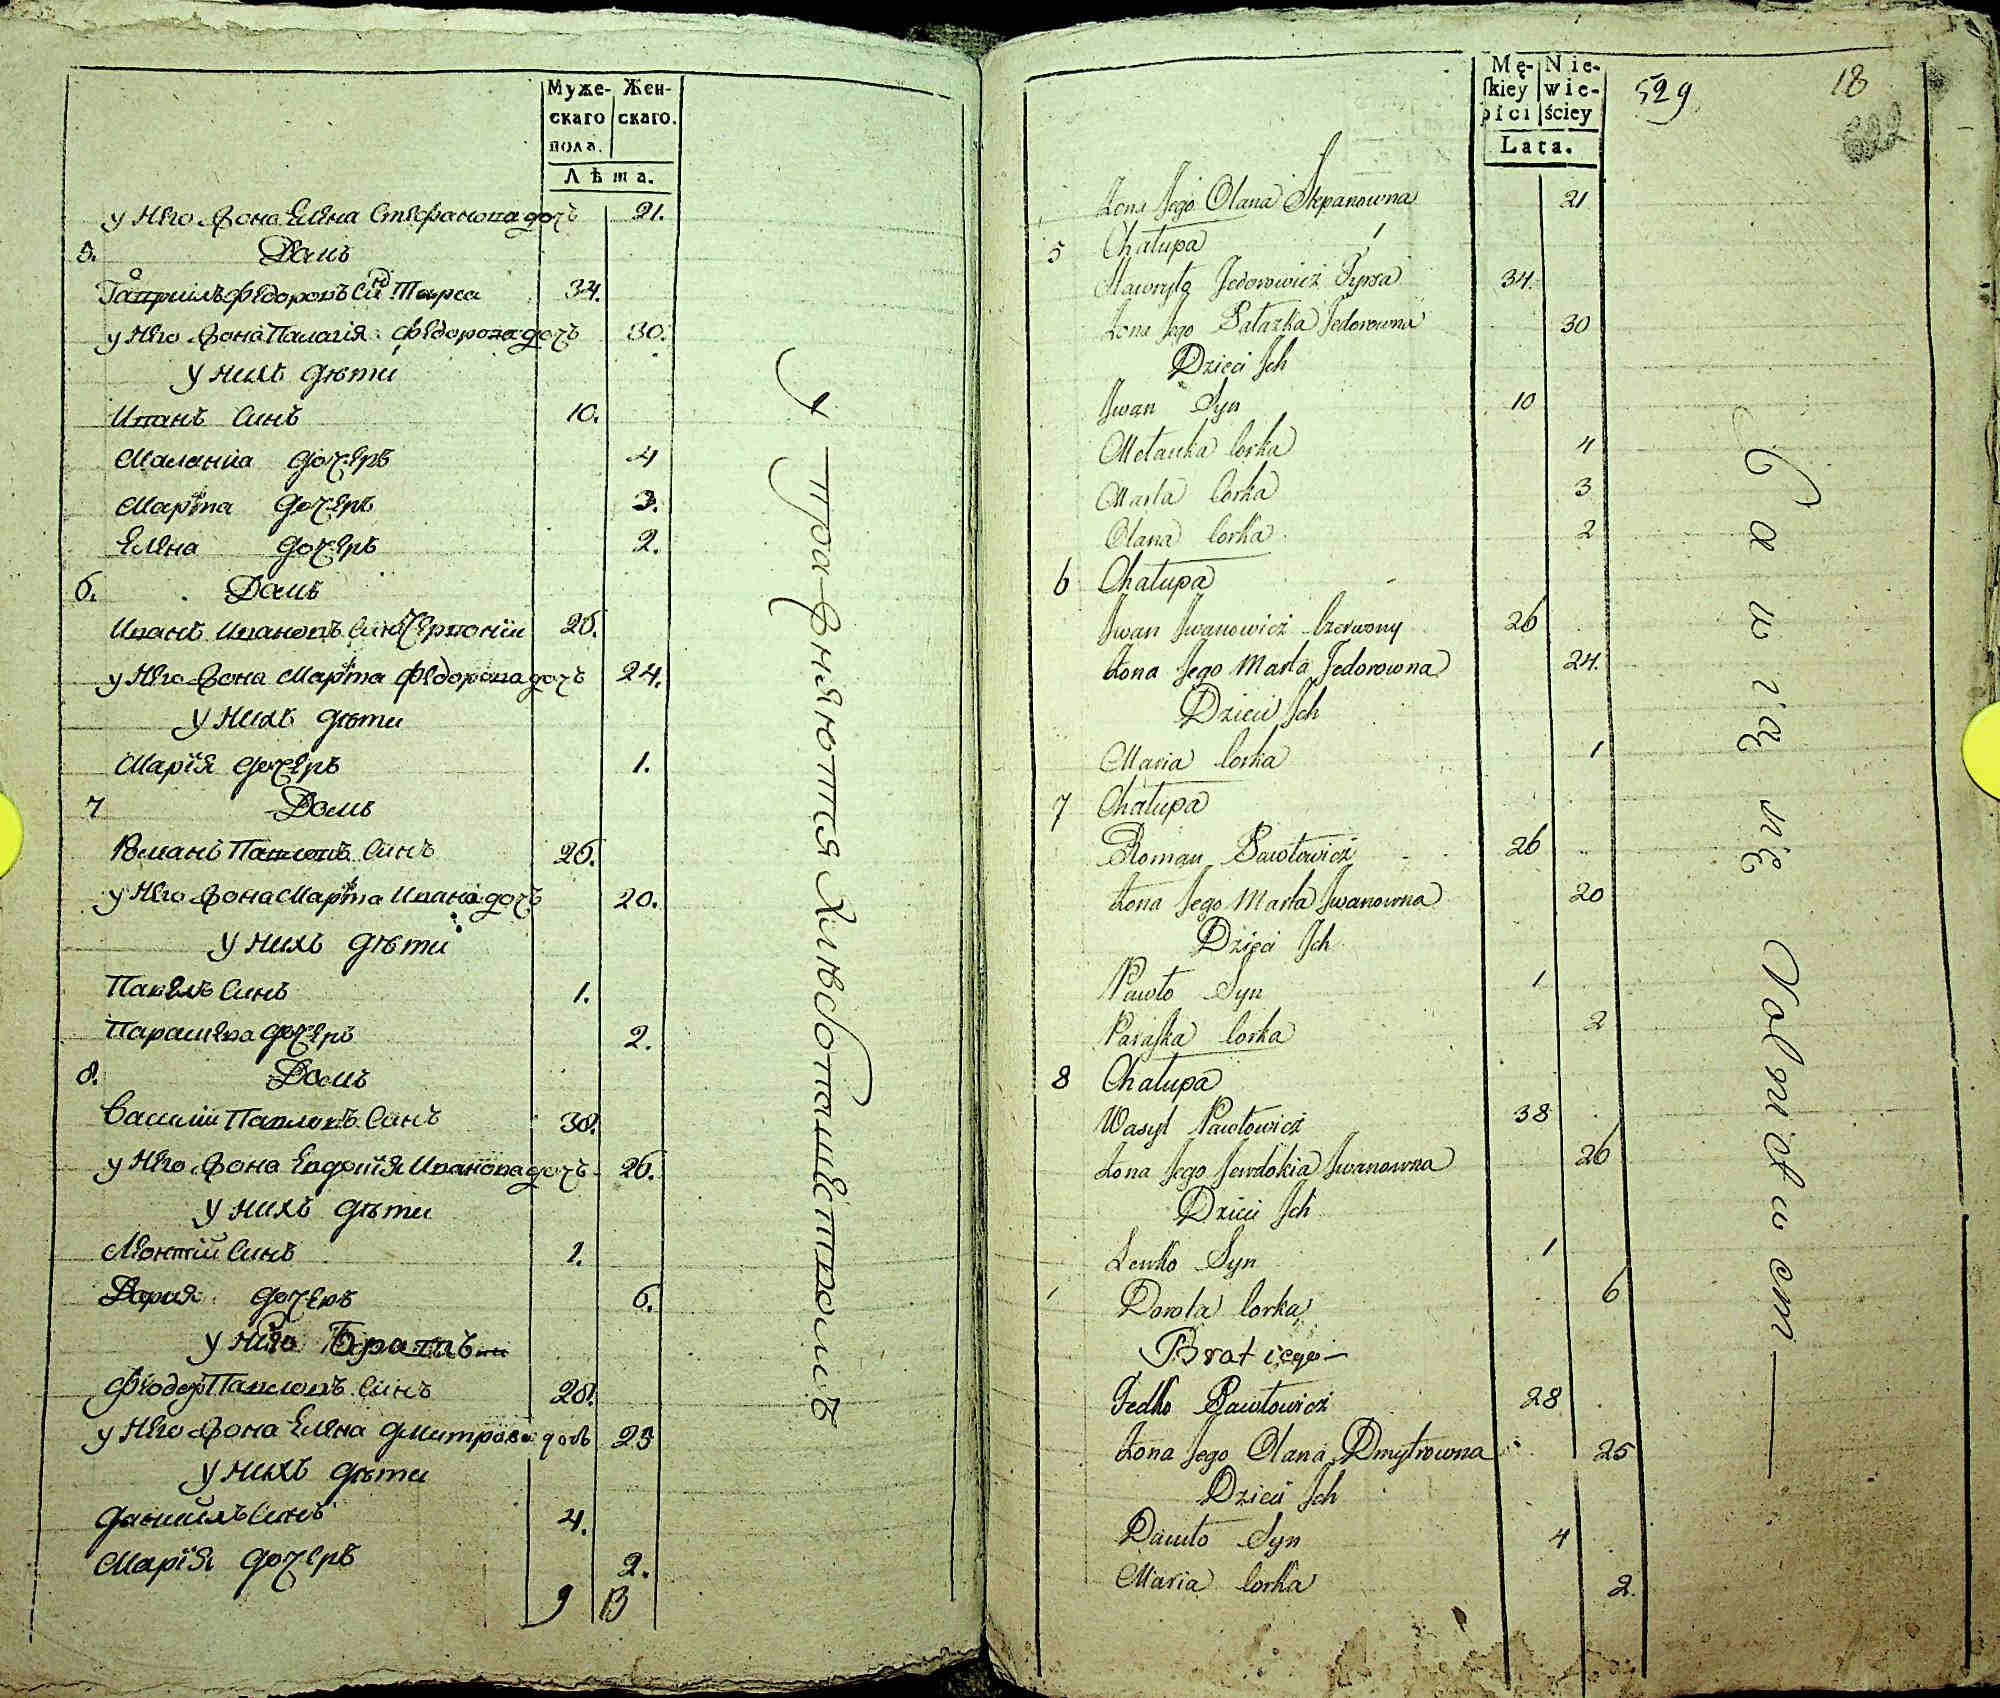 Муже-
скаго
пола.
Жен-
скаго.
Лѣта.
у него жона Елена Стефанова дочъ 21.
5. Домъ
Гаврилъ Федоровъ синъ Тирса 34.
у него жона Палагія Федорова дочъ 30.
у нихъ дѣти
Иванъ синъ 10.
Маланиа дочерь 4
Марта дочерь 3.
Елена дочерь 2.
6. Домъ
Иванъ Ивановъ синъ Червоніи 26.
у него жона Марта Федорова дочъ 24.
у нихъ дѣти
Марія дочерь 1.
7 Домъ
Романъ Павловъ синъ 26.
у него жона Марта Ивана дочъ 20.
у нихъ дѣти
Павелъ синъ 1.
Парашева дочерь 2.
8. Домъ
Василіи Павловъ синъ 38.
у него жона Евдокія Иванова дочъ 26.
у нихъ дѣти
Леонтій синъ 1.
Дария дочерь 6.
у него Братъ
Феодоръ Павловъ синъ 28.
у него жона Елена Дмитрова дочъ 25
у нихъ дѣти
Даниилъ синъ 4.
Марія дочерь 2.
9 13
Упражняются хлѣбопашествомъ
Mę-
skiey
płci
Nie-
wie-
ściey
Lata.
529
18
622
Żona Jego Olana Stepanowna 21
5 Chałupa
Hawryło Fedorowicz Tyrsa 34.
Żona Jego Pałazka Fedorowna 30
Dzieci Ich
Iwan Syn 10
Mełanka Corka 4
Marta Corka 3
Olana Corka 2
6 Chałupa
Iwan Iwanowicz Czerwony 26
Żona Jego Marta Fedorowna 24.
Dzieci Ich
Maria Corka 1
7 Chałupa
Roman Pawłowicz 26
Żona Jego Marta Iwanowna 20
Dzieci Ich
Pawło Syn 1
Paraska Corka 2
8 Chałupa
Wasyl Pawłowicz 38
Żona Jego Jewdokia Iwanowna 26
Dzieci Ich
Lewko Syn 1
Dorota Corka 6
Brat iego
Fedko Pawłowicz 28
Żona Jego Olana Dmytrowna 25
Dzieci Ich
Daniło Syn 4
Maria Corka 2.
Bawią się Rolnictwem